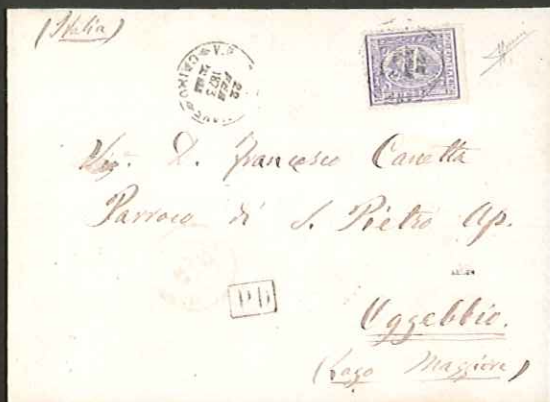 (Italia)
22
1873
CAIRO
D. Francesco Canetta
Parroco di S. Pietro Ap.
PD
Oggebbio.
(Lago Maggiore)